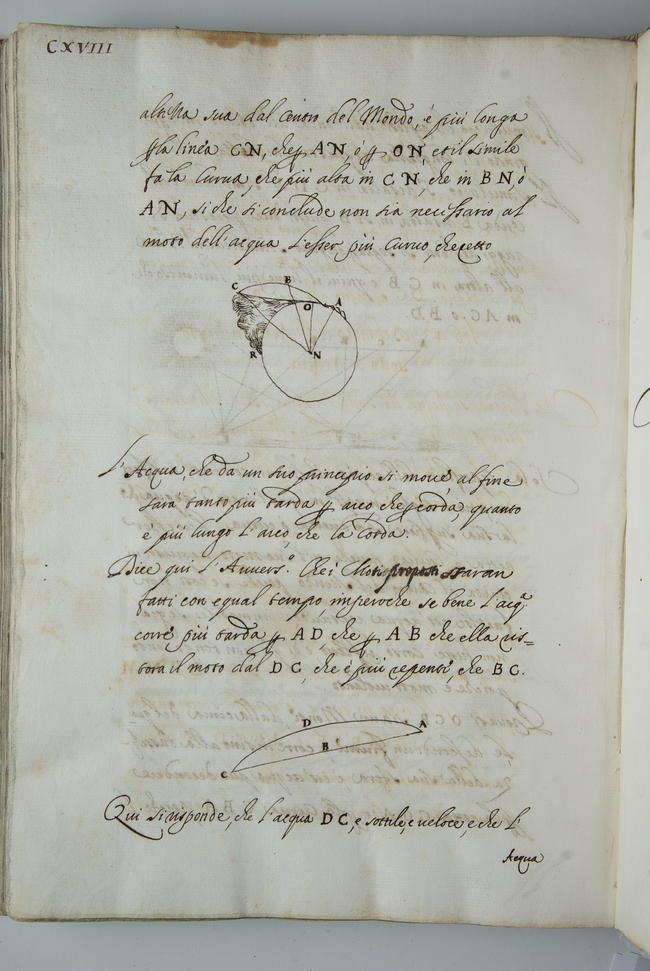 CXVIII
altezza sua dal centro del Mondo, è più longa
la linea CN, che AN, ò ON, et il simile
fa la curva, che più alta in CN, che in BN, ò
AN, si che si conclude non sia necessario al
moto dell'acqua l'esser più curvo, che retto
C B O A
R N
L'Acqua, che da un suo principio si move, al fine
sarà tanto più tarda arco, che corda, quanto
è più lungo l'arco, che la corda.
Dice qui l'Auuers.º Che i Moti proposti saran
fatti con equal tempo, imperoche se bene l'acq.ª
corre più tarda AD, che AB che ella ris=
tora il moto dal DC, che è più repente, che BC.
D A
B
C
Qui si risponde, che l'acqua DC, e sottile, e veloce, e che l'
Acqua